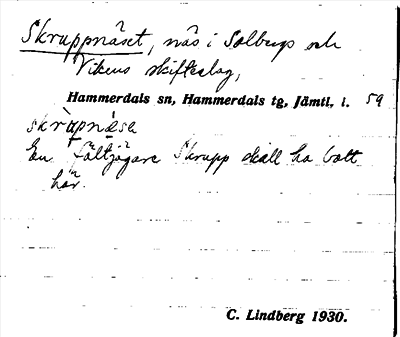 Skruppnäset, näs i Solbergs och
Vikens skifteslag,
Hammerdals sn, Hammerdals tg, Jämtl. l. 59
skrùpnä̀sə
En fältjägare Skrupp skall ha bott
här.
C. Lindberg 1930.